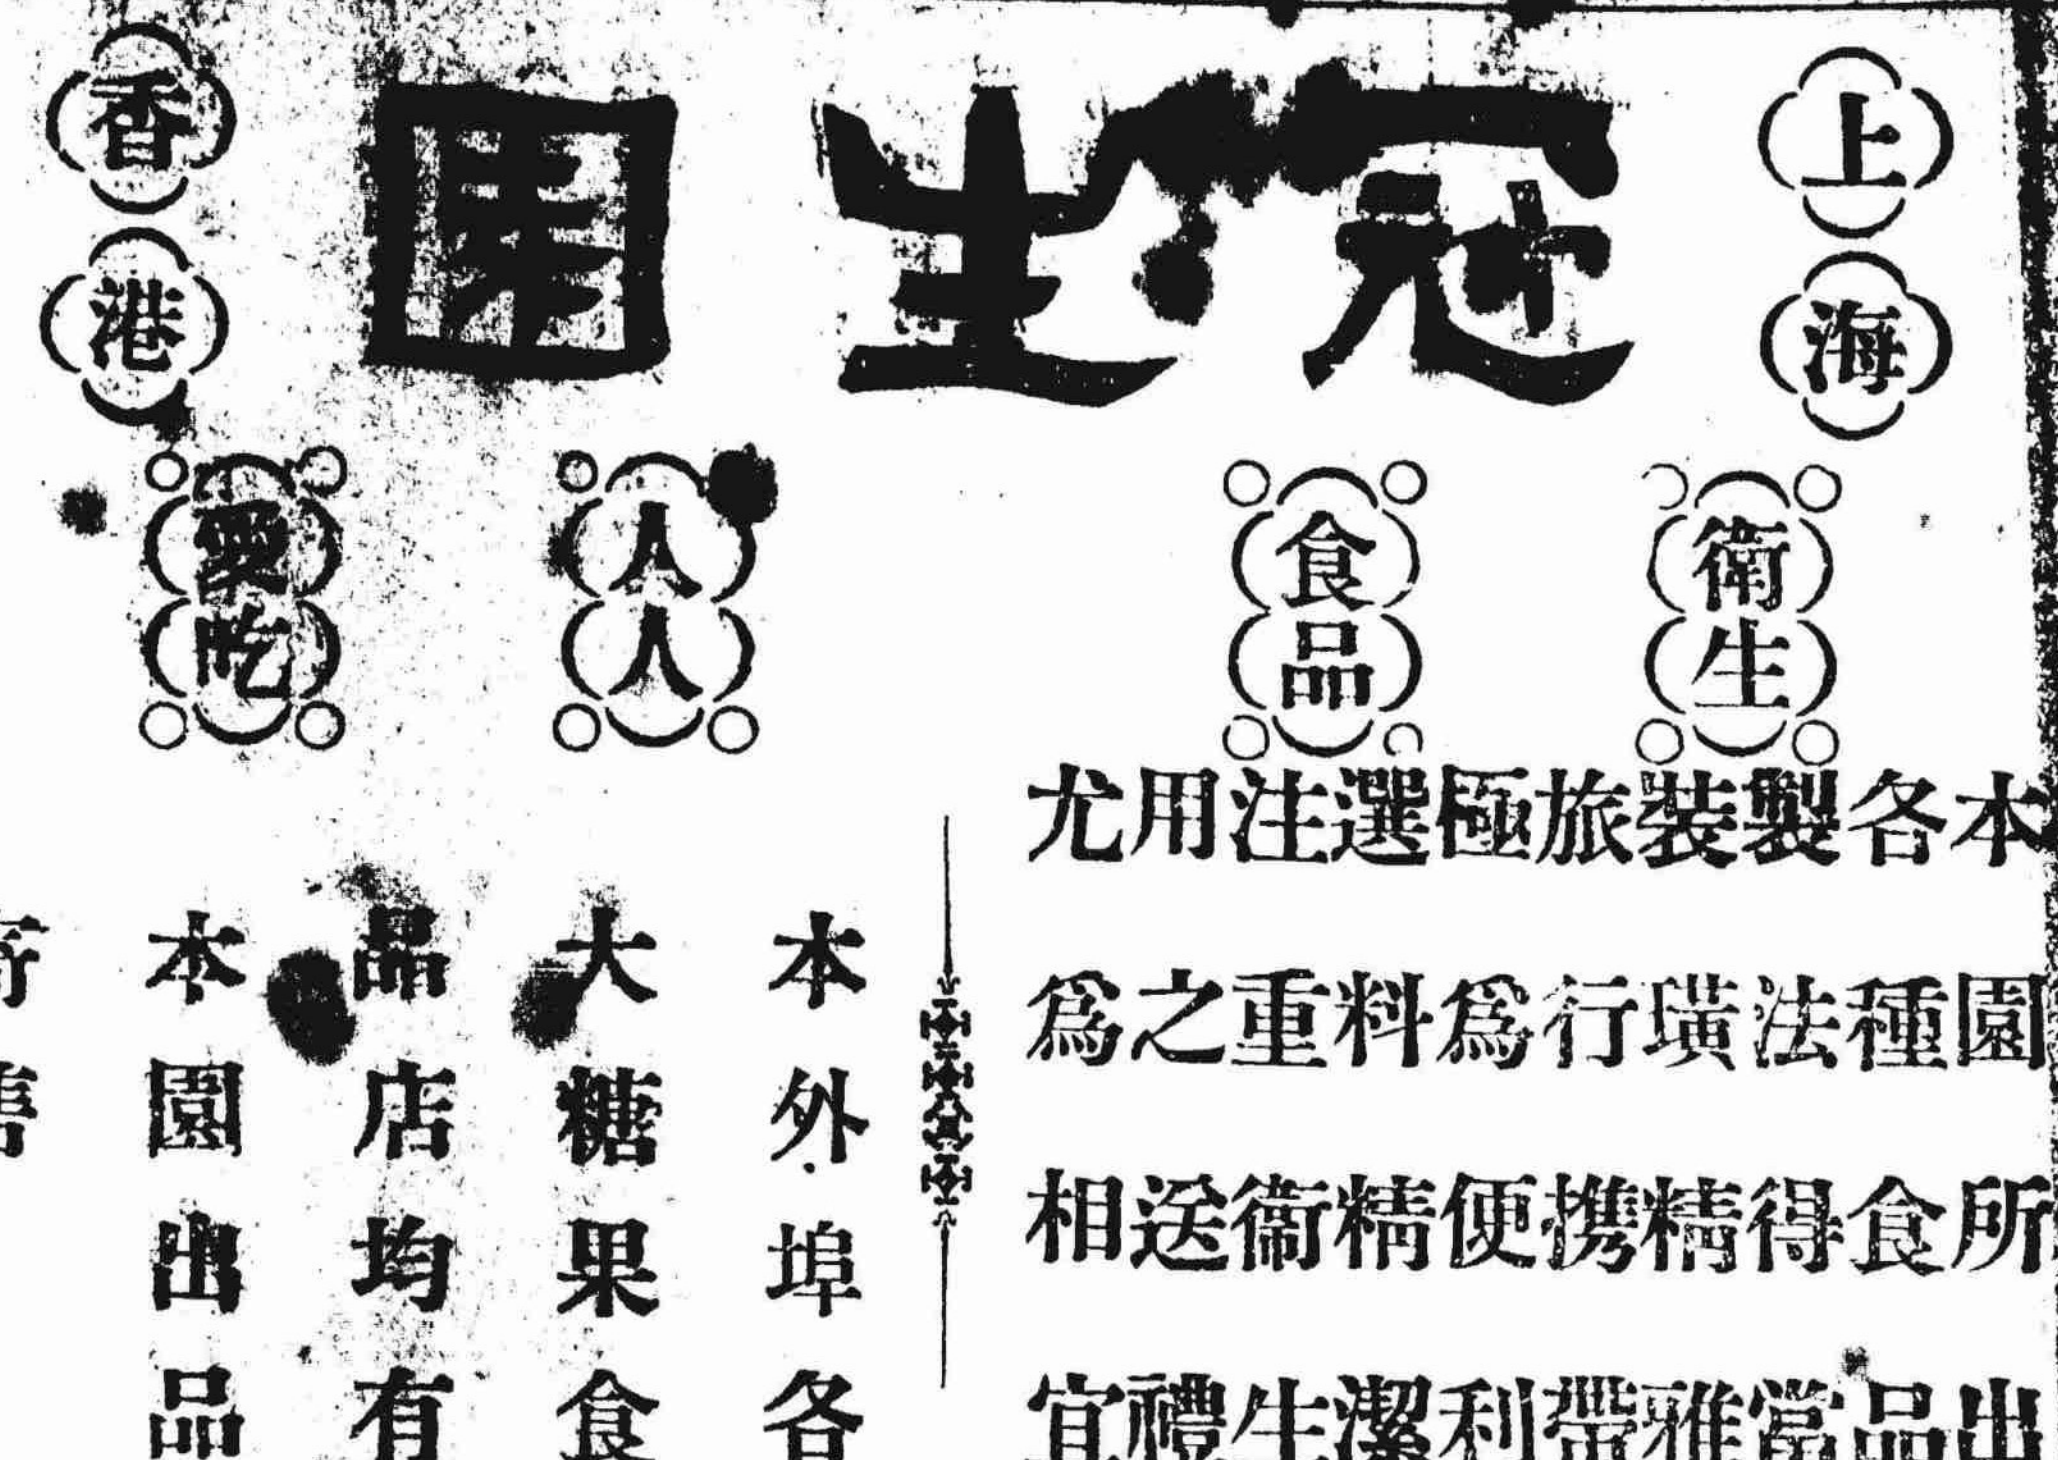 上海
冠生園
香港
衛生
食品
人人
愛吃
本園所出
各種食品
製法得當
裝璜精雅
旅行携帶
極爲便利
選料精潔
注重衞生
用之送禮
尤爲相宜
本外埠各
大糖果食
品店均有
本園出品
寄售